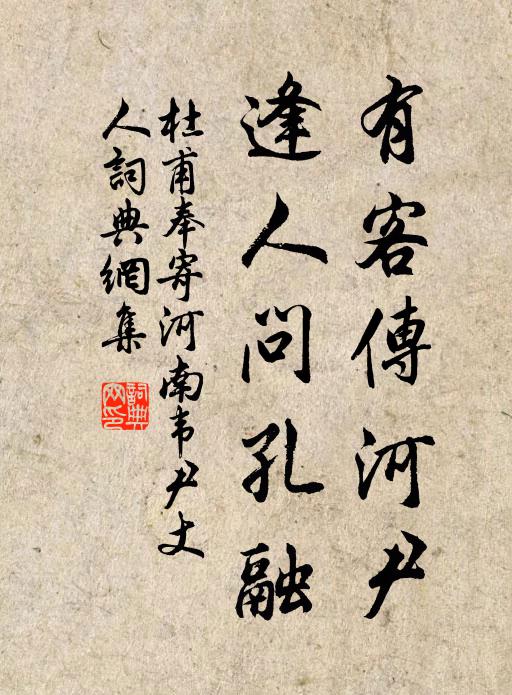 有客傳河尹
逢人問孔融
杜甫奉寄河南韦尹丈
人詞典網集
詞典
网印